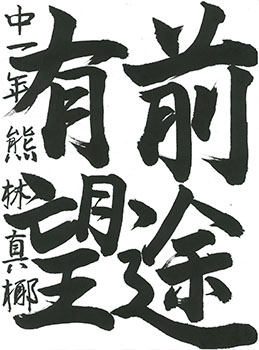 前途
有望
中一年 熊林真椰